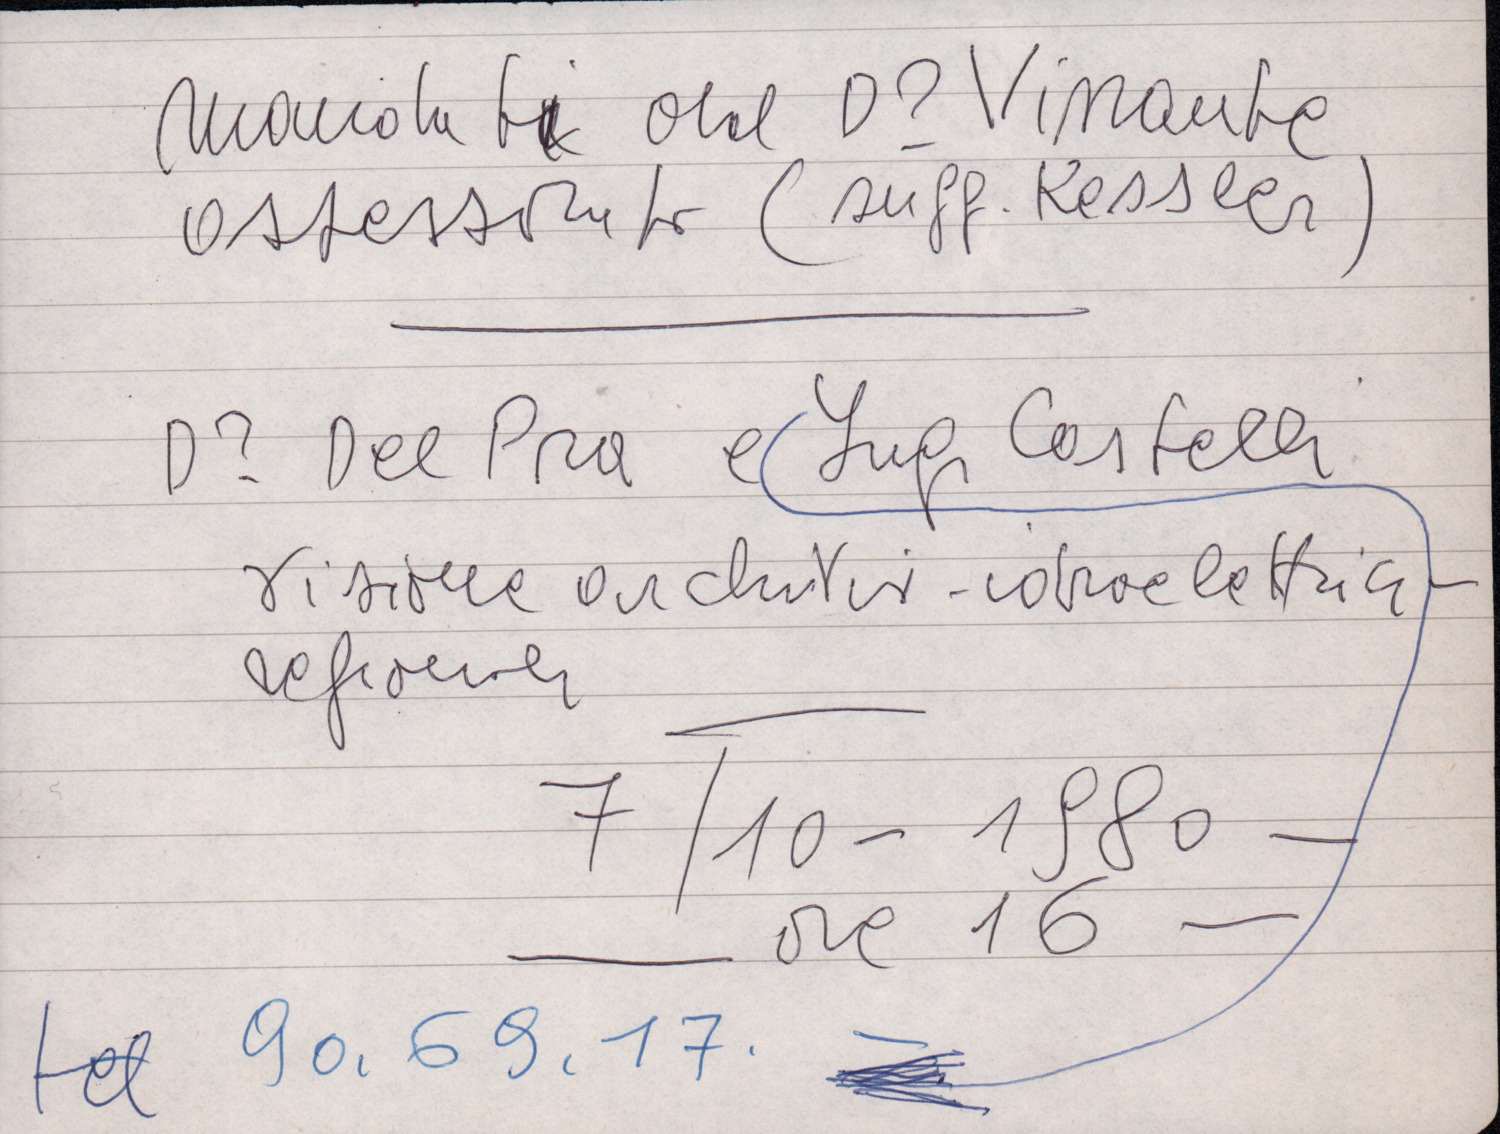 mandati dal D? Vinante
assessorato (sugg. Kessler)
D? Del Pra e Ing Castelli
visione archivi - idroelettrici -
regionali
7/10 - 1980 -
ore 16 -
tel 90.69.17. -